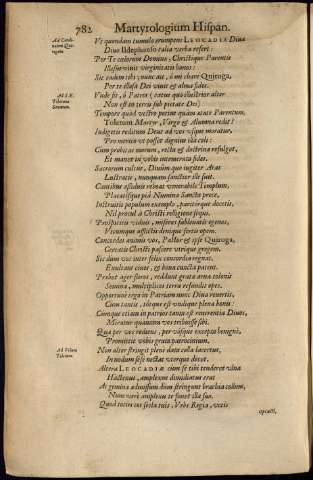 782 Martyrologium Hispan.
Ad Cardi-
nalem Qui-
rogam.
Vt quondam tumulo erumpens LEOCADIA Diua
Diuo Ildephonso talia verba refert:
Per Te cœlorum Domina, Christique Parentis
Illasurinis virginitatis honos:
Sic eadem tibi nunc ait, ô mi chare Quiroga,
Per te illasa Dei viuit & alma fides.
Ad S. E.
Toletana
Senatum.
Vnde sit, ô Patres (cœtus quis illustrior alter
Non est in terris sub pietate Dei)
Tempore quòd vestro patriæ quàm atate Parentum,
Toletum Martyr, Virgo & Alumna redit?
Indigetis reditum Deus ad vos vsque moratur,
Pro meritis vt posset digniùs illa coli:
Cum probitas morum, recta & doctrina refulget,
Et manet in vobis intemerata fides.
Sacrorum cultus, Diuûm que iugiter Aras
Lustratis, nunquam sanctiùs illa fuit.
Cantibus assiduis reinas venerabile Templum,
Placatisque pia Numina Sancta prece,
Instruitis populum exemplo, paritérque docetis,
Nil procul à Christi religione sequi.
Prospicitis viduis, miseros sublimatis egenos,
Vicumque afflictis denique fertis opem.
Concordes animis vos, Pastor & ipse Quiroga,
Certatis Christi pascere vterque gregem.
Sic dum vos inter felix concordia regnat,
Exultans ciues, & bona cuncta patent.
Probat ager flores, reddunt grata arua colenti
Semina, multiplices terra refundit opes.
Opportunè ergo in Patriam nunc Diua reuertit,
Cum tantis, tótque est vndique plena bonis:
Cumque etiam in patrios tanta est reuerentia Diuos,
Miratur quantum vos tribuisse sibi.
Qua per vos rediens, per vósque excepta benignè,
Promittit vobis grata patrocinium.
Ad Vlnas
Toletum.
Non aliter stringit pleni data vlna lacertus,
In nodum sese nectat vterque decet.
Altera LEOCADIÆ cùm se tibi tenderet vlna
Hactenus, amplexus dimidiatus erat
At gemina admissum dum stringunt brachia collum,
Nunc verè amplexus te fouet illa suu.
Quod toties tot sæclis tuis, Vrbs Regia, votis
optasti,